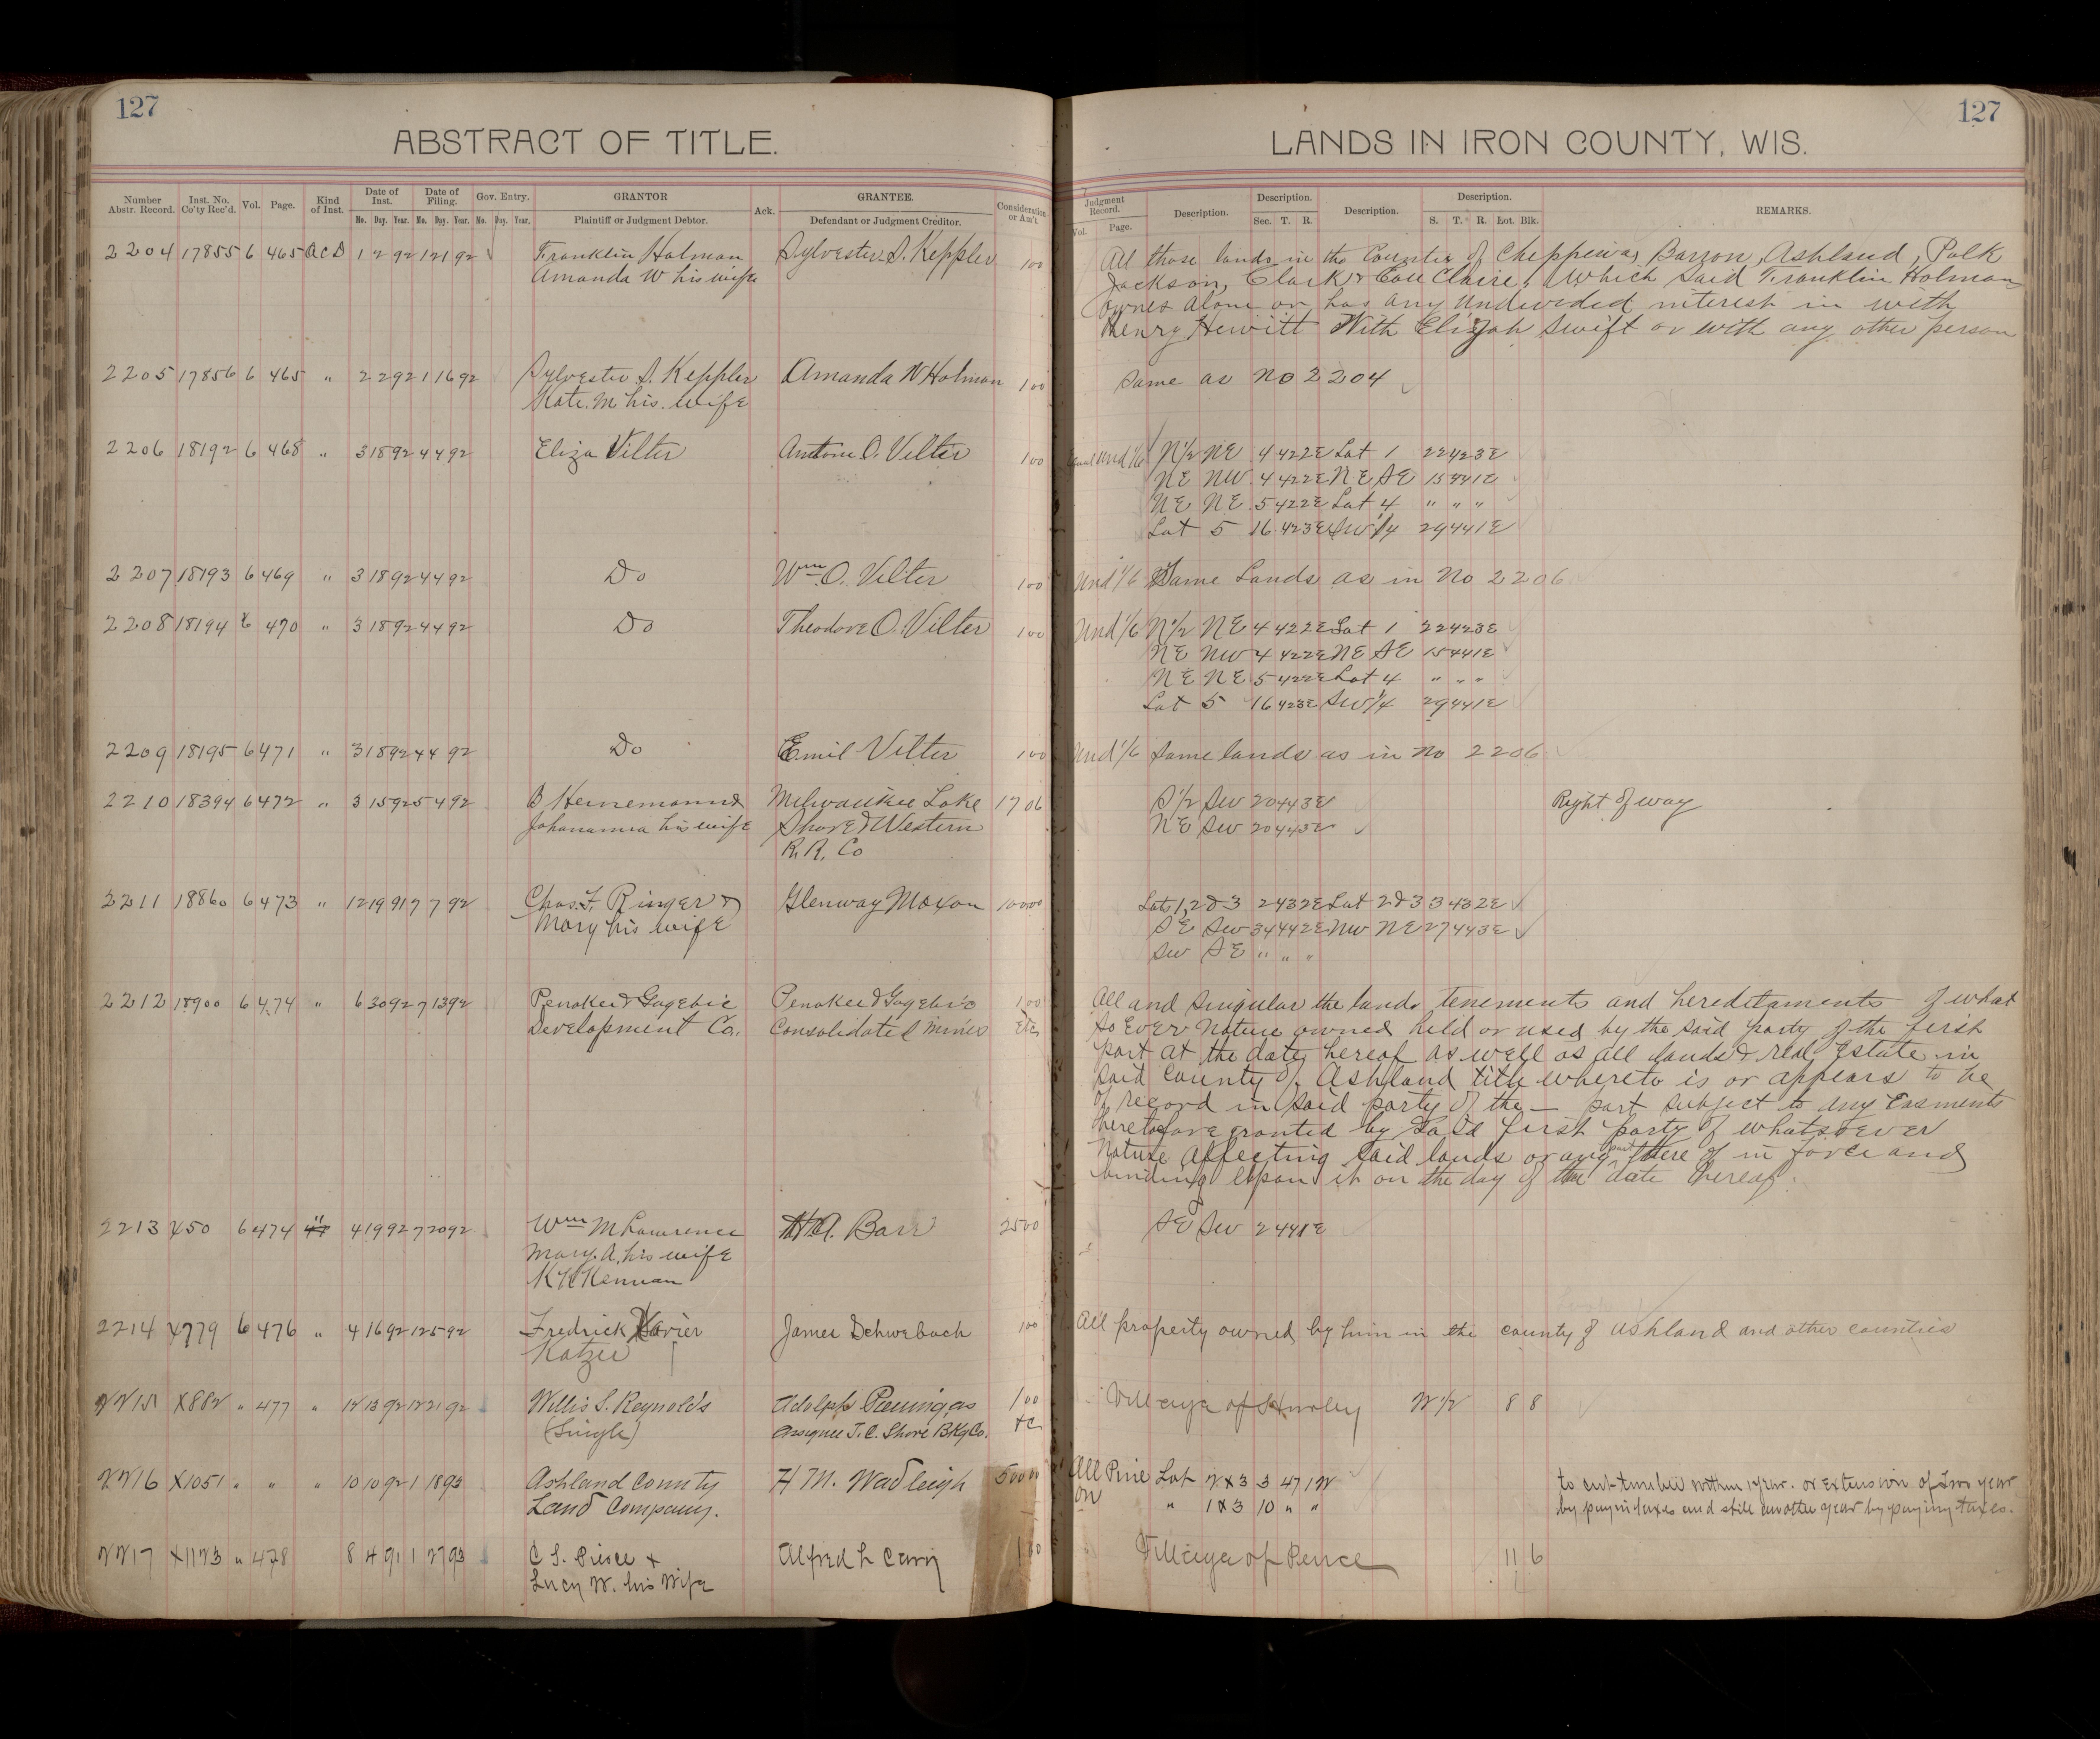 127
127
ABSTRACT OF TITLE.
LANDS IN IRON COUNTY, WIS.
Number Abstr. Record. Inst. No. Co'ty Rec'd. Vol. Page. Kind of Inst. Date of Inst. Mo. Day. Year. Date of Filing. Mo. Day. Year. Gov. Entry. Mo. Day. Year. GRANTOR Plaintiff or Judgment Debtor. Ack. GRANTEE. Defendant or Judgment Creditor. Consideration or Am't.
Judgment Record. Vol. Page. Description. Description. Sec. T. R. Description. Description. S. T. R. Lot. Blk. REMARKS.
2204 17855 6 465 Franklin Holman Sylvester S. Keppler 100 All those lands in the Counties of Cheppewa, Barron, Ashland, Polk
Amanda W his wife Jackson, Clark & Eau Claire, Which said Franklin Holman
ownes alone or has any Undivided interest in with
Henry Hewitt With Elijah Swift or with any other person
2205 17856 6 465 " 2 2 92 1 16 92 Sylvester S. Keppler Amanda W Holman 100 Same as No 2204
Kate. M his. wife
2206 18192 6 468 " 3 18 92 4 4 92 Eliza Vilter Antone O. Vilter 100 und 1/6 N 1/2 NE 4 42 2E Lot 1 2 24 23E
NE NW 4 42 2E NE SE 15 44 1E
NE NE 5 42 2E Lot 4 " " "
Lot 5 16 42 3E SW 1/4 29 44 1E
2207 18193 6 469 " 3 18 92 4 4 92 Do Wm O. Vilter 100 Und 1/6 Same Lands as in No 2206
2208 18194 6 470 " 3 18 92 4 4 92 Do Theodore O. Vilter 100 Und 1/6 N 1/2 NE 4 42 2E Lot 1 22 42 3E
NE NW 4 42 2E NE SE 15 44 1E
NE NE 5 42 2E Lot 4 " " "
Lot 5 16 42 3E SW 1/4 29 44 1E
2209 18195 6 471 " 3 18 92 4 4 92 Do Emil Vilter 100 Und 1/6 Same lands as in No 2206
2210 18394 6 472 " 3 15 92 5 4 92 B Heinemann & Milwaukee Lake 1706 S 1/2 SW 20 44 3E Right of way
Johannna his wife Shore & Western NE SW 20 44 3E
R. R. Co
2211 18860 6 473 " 12 19 91 7 7 92 Chas. F. Ringer & Glenway Maxon 10000 Lots 1, 2 & 3 2 43 2E Lot 2 & 3 3 43 2E
Mary his wife SE SW 34 44 2E NW NE 27 44 3E
SW SE " " "
2212 18900 6 474 " 6 30 92 7 13 92 Penokee & Gogebic Penokee & Gogebic 100 All and Singular the lands tenements and hereditaments of what
Development Co. Consolidated Mines Etc so Ever Nature owned held or used by the said party of the first
part at the date hereof as well as all lands & real Estate in
said County of Ashland title whereto is or appears to be
of record in said party of the — part subject to any Easments
heretofore granted by said first party of whatsoever
Nature affecting said lands or any part there of in force and
binding upon it on the day of the date hereof.
2213 X50 6 474 " 4 19 92 7 20 92 Wm M Lawrence H A. Barr 2500 SE SW 2 44 1E
Mary. A. his wife
K K Kennan
2214 X779 6 476 " 4 16 92 12 5 92 Fredrick Xavier James Schwebach 100 All property owned by him in the county of Ashland and other counties
Katzer
2215 X882 " 477 " 12 13 92 12 21 92 Willis S. Reynolds Adolph 100 Village of Hurley W 1/2 8 8
(Single) Assignee T. C. Shove BKg Co. &C
2216 X1051 " " " 10 10 92 1 18 93 Ashland County H M. Wadleigh 50000 All Pine Lot 2 X 3 3 47 1W to cut timber within 1 year. or Extension of two year
Land Company. on " 1 X 3 10 " " by paying taxes and still another year by paying taxes.
2217 X1123 " 478 8 4 91 1 27 93 C S. Pierce + Alfred L Cary 100 Village of Pence 11 6
Lucy W. his Wife